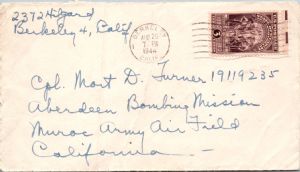 2372 Hilgard
Berkeley 4, Calif
BERKELEY
AUG 25
7 PM
1944
CALIF.
Cpl. Mort D. Turner 19119235
Aberdeen Bombing Mission
Muroc Army Air Field
California